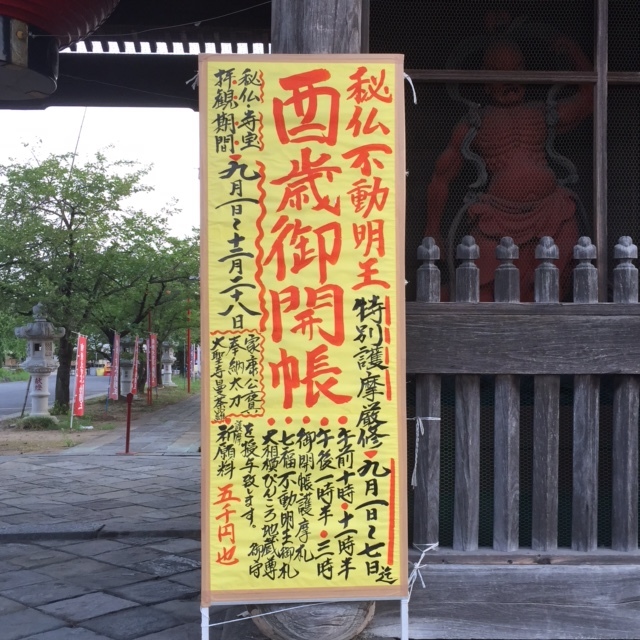 秘仏不動明王
特別護摩厳修 九月一日〜七日迄
酉歳御開帳
午前十時・十一時半
午後一時半・三時
御開帳護摩札
七福不動明王御札
大相模ぴんころ地蔵尊
御守
を授与致します。
祈願料 五千円也
秘仏・寺宝
拝観期間
九月一日〜十二月二十八日
家康公
奉納太刀